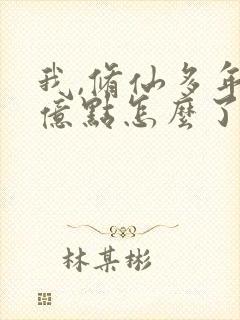 我,脩仙多年
億點怎麼了
林某彬